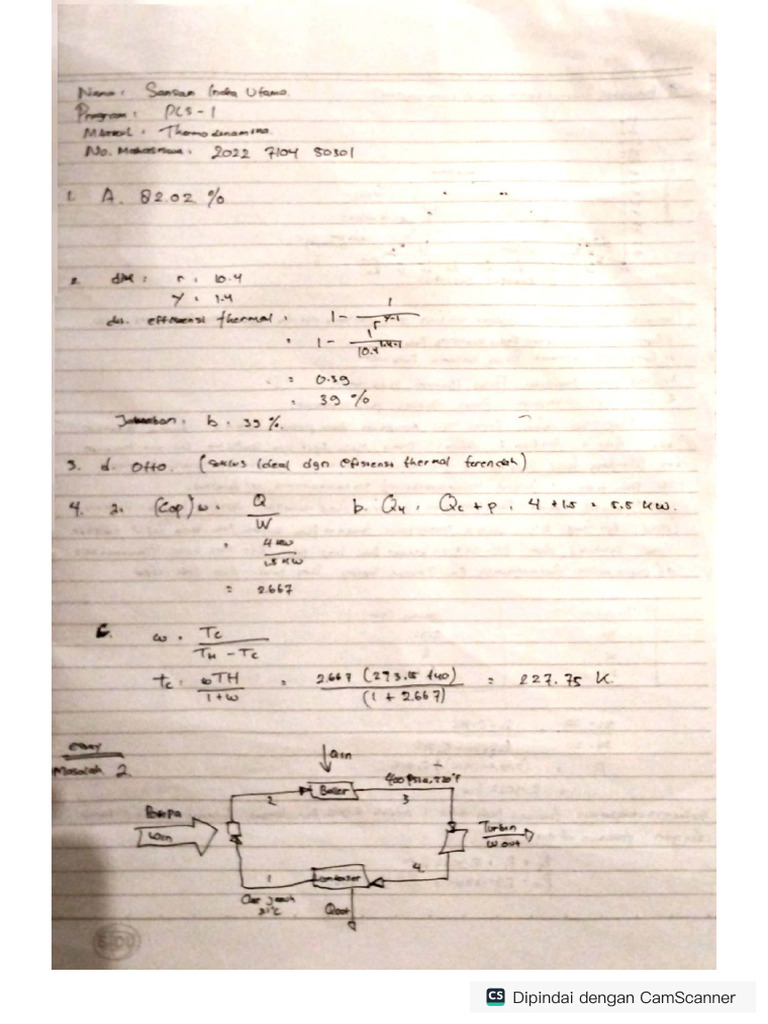 Nama : Sansan Indra Utama
Program : PCS-1
Matkul : Thermodinamina
No. Mahasiswa : 2022 7104 50301
1. A. 82.02 %
2. dik : r : 10.4
γ : 1.4
dit. effisiensi thermal : 1 - 1 / r^γ-1
: 1 - 1 / 10.4^1.4-1
= 0.39
= 39 %
Jawaban : b. 39 %.
3. d. Otto. (siklus Ideal dgn efisiensi thermal terendah)
4. a. (Cop) ω = Q / W b. QH = Qc + p = 4 + 1.5 = 5.5 kW.
= 4 kW / 1.5 kW
= 2.667
C. ω = Tc / TH - Tc
tc = ωTH / 1+ω = 2.667 (273.15 +40) / (1 + 2.667) = 227.75 K.
essay
Masalah 2.
Qin
400 Psia, 720°F
2 Boiler 3
Pompa
Win
Turbin
W out
1 4
Cair jenuh
Qout
CS Dipindai dengan CamScanner